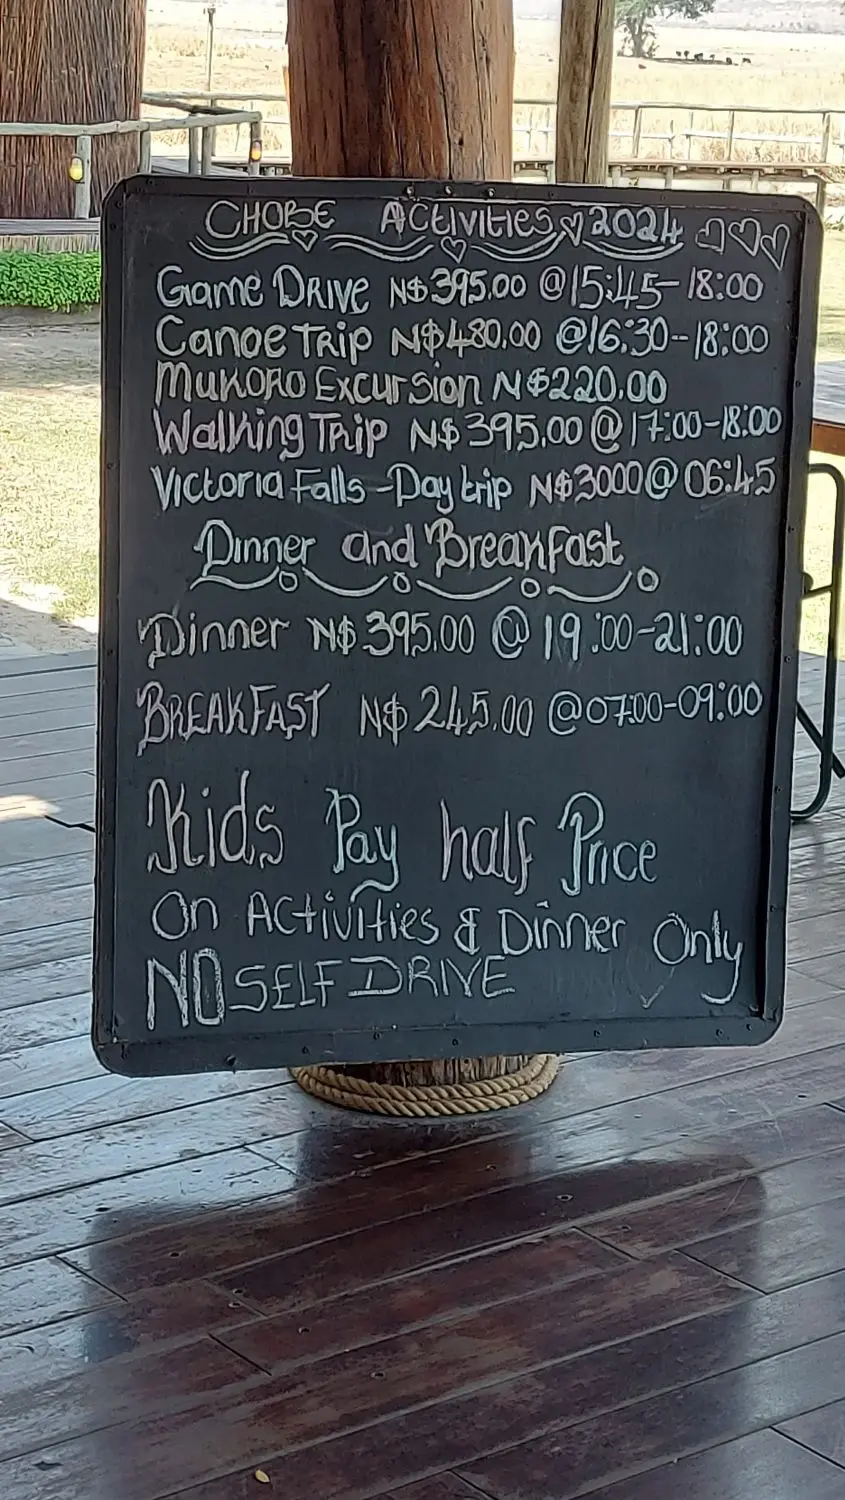 CHOBE Activities 2024
Game Drive N$395.00 @15:45-18:00
Canoe Trip N$480.00 @16:30-18:00
Mukoro Excursion N$220.00
Walking Trip N$395.00@17:00-18:00
Victoria Falls-Daytrip N$3000@06:45
Dinner and Breakfast
Dinner N$395.00 @ 19:00-21:00
BREAKFAST N$245.00 @07:00-09:00
Kids Pay half Price
On Activities & Dinner Only
NO SELF DRIVE